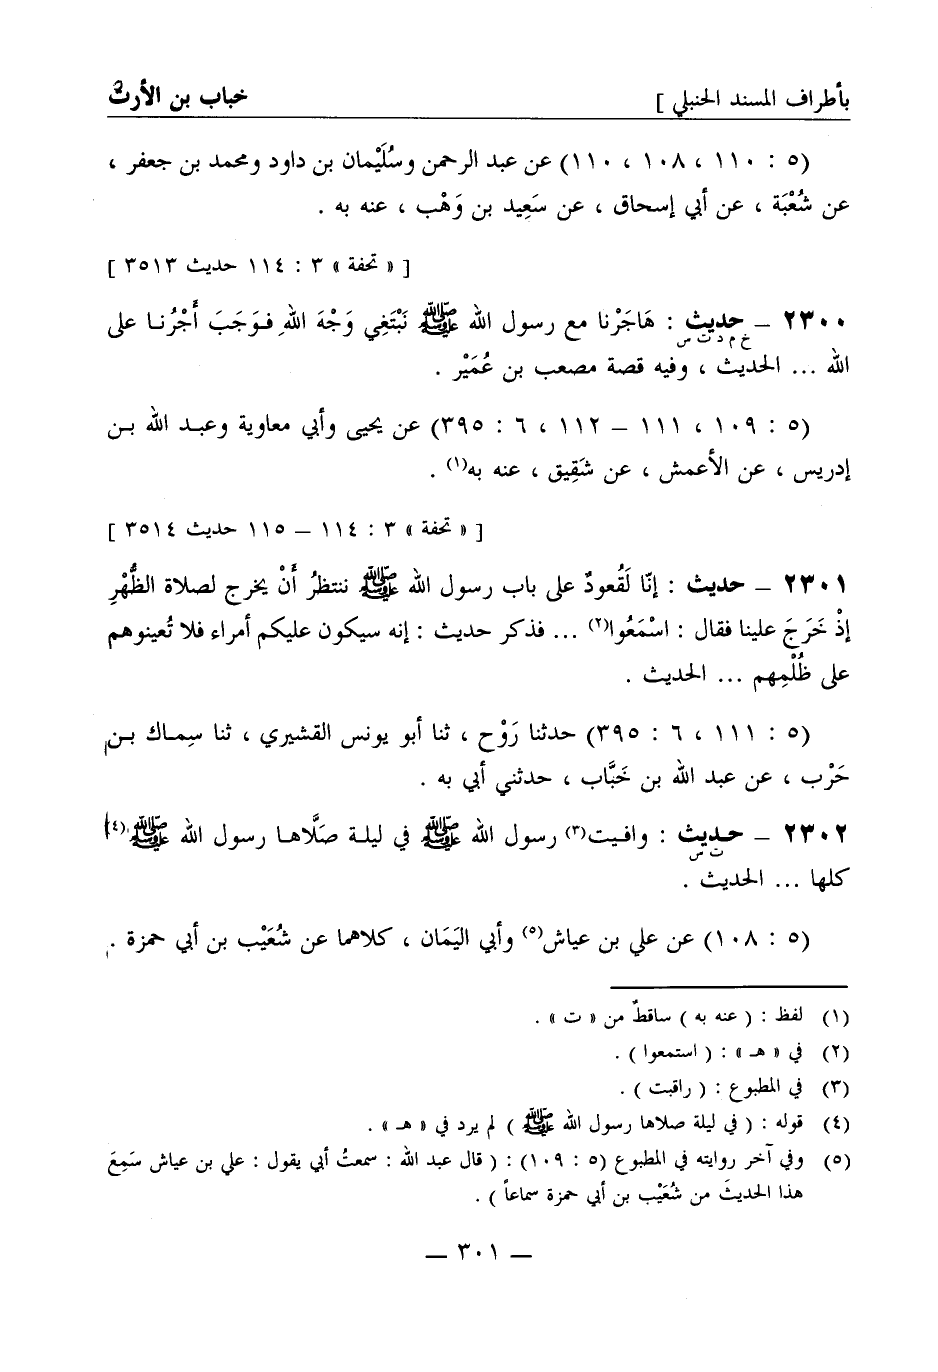 بأطراف المسند الحنبلي ] خباب بن الأرتّ
(٥ : ١١٠ ، ١٠٨ ، ١١٠) عن عبد الرحمن وسُلَيْمان بن داود ومحمد بن جعفر ،
عن شُعْبَة ، عن أبي إسحاق ، عن سَعِيد بن وَهْب ، عنه به .
[ « تحفة » ٣ : ١١٤ حديث ٣٥١٣ ]
٢٣٠٠ – حديث : هَاجَرْنا مع رسول الله ﷺ نَبْتَغِي وَجْهَ اللهِ فوَجَبَ أَجْرُنا على
خ م د ت س
الله ... الحديث ، وفيه قصة مصعب بن عُمَيْر .
(٥ : ١٠٩ ، ١١١ – ١١٢ ، ٦ : ٣٩٥) عن يحيى وأبي معاوية وعبد الله بن
إدريس ، عن الأعمش ، عن شَقِيق ، عنه به(١) .
[ « تحفة » ٣ : ١١٤ – ١١٥ حديث ٣٥١٤ ]
٢٣٠١ – حديث : إنّا لَقُعودٌ على باب رسول الله ﷺ ننتظرُ أَنْ يخرج لصلاة الظُّهْرِ
إذْ خَرَجَ علينا فقال : اسْمَعُوا(٢) ... فذكر حديث : إنه سيكون عليكم أمراء فلا تُعينوهم
على ظُلْمِهم ... الحديث .
(٥ : ١١١ ، ٦ : ٣٩٥) حدثنا رَوْح ، ثنا أبو يونس القشيري ، ثنا سِماك بن
حَرْب ، عن عبد الله بن خَبَّاب ، حدثني أبي به .
٢٣٠٢ – حديث : وافيت(٣) رسول الله ﷺ في ليلة صَلَّاها رسول الله ﷺ(٤)
ت س
كلها ... الحديث .
(٥ : ١٠٨) عن علي بن عياش(٥) وأبي اليَمَان ، كلاهما عن شُعَيْب بن أبي حمزة .
(١) لفظ : ( عنه به ) ساقطٌ من « ت » .
(٢) في « هـ » : ( استمعوا ) .
(٣) في المطبوع : ( راقبت ) .
(٤) قوله : ( في ليلة صلاها رسول الله ﷺ ) لم يرد في « هـ » .
(٥) وفي آخر روايته في المطبوع (٥ : ١٠٩) : ( قال عبد الله : سمعتُ أبي يقول : علي بن عياش سَمِعَ
هذا الحديثَ من شُعَيْب بن أبي حمزة سماعاً ) .
— ٣٠١ —